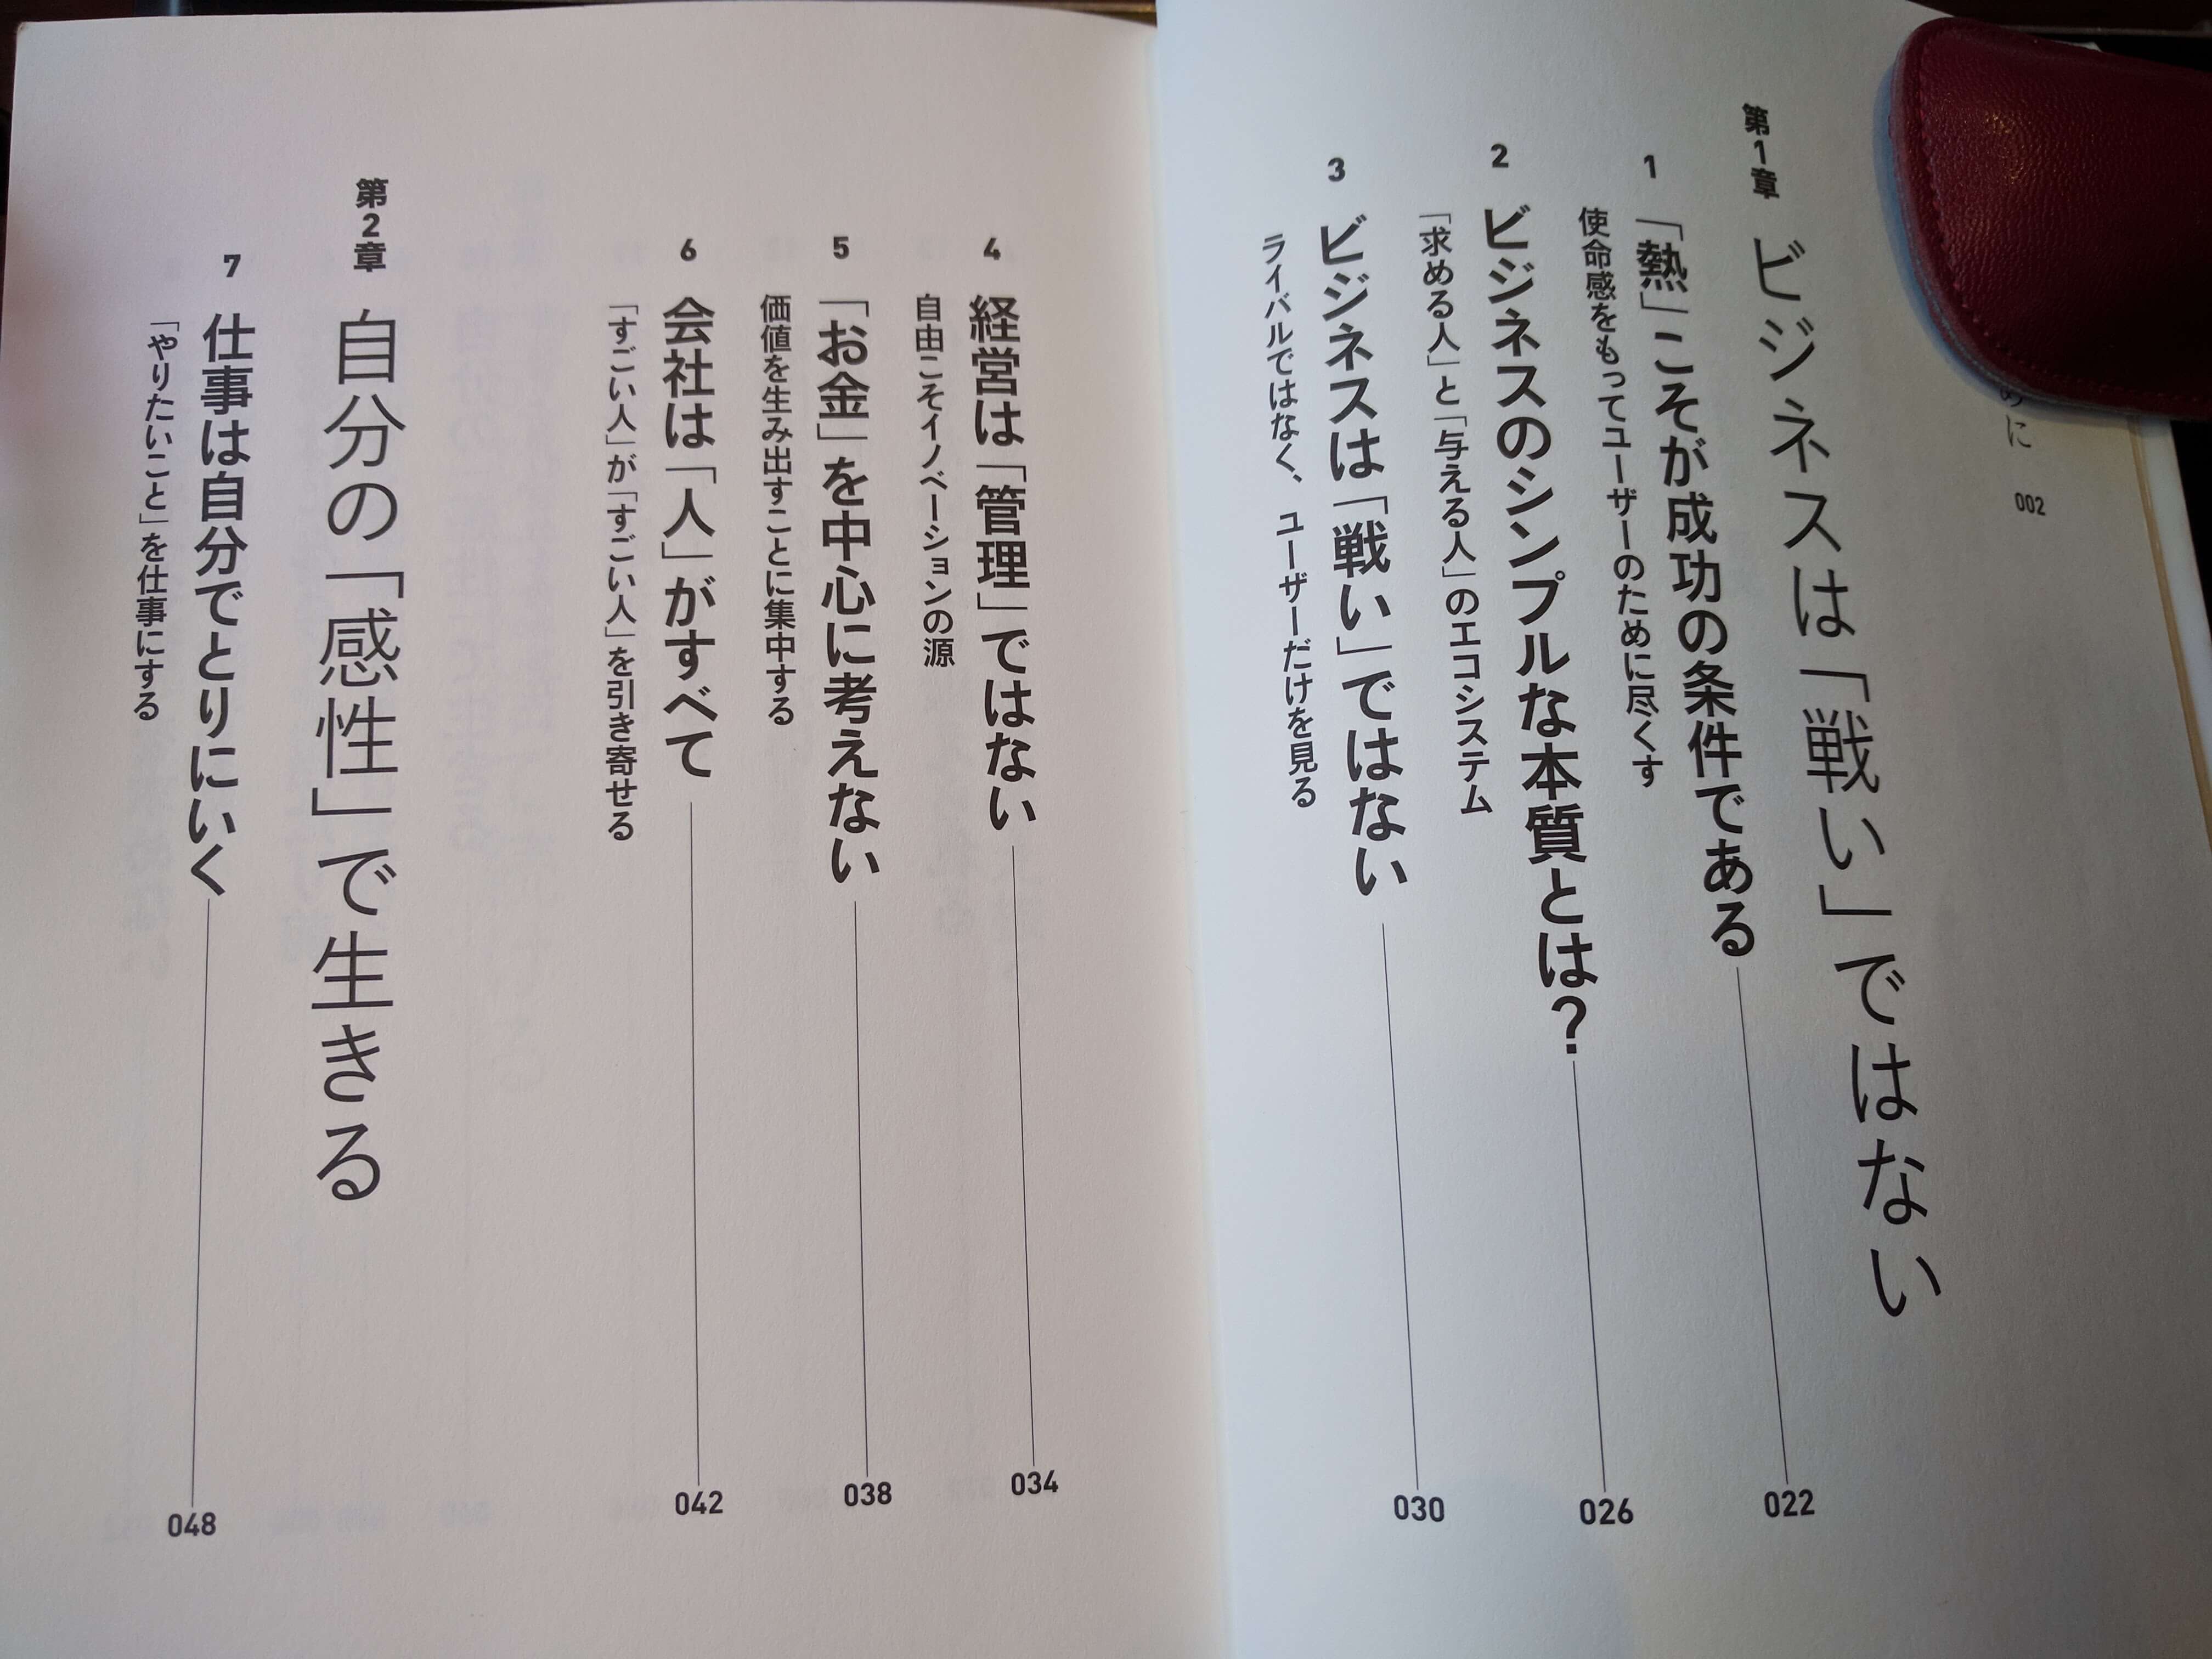 めに
002
第1章 ビジネスは「戦い」ではない
1 「熱」こそが成功の条件である 022
使命感をもってユーザーのために尽くす
2 ビジネスのシンプルな本質とは? 026
「求める人」と「与える人」のエコシステム
3 ビジネスは「戦い」ではない 030
ライバルではなく、ユーザーだけを見る
4 経営は「管理」ではない 034
自由こそイノベーションの源
5 「お金」を中心に考えない 038
価値を生み出すことに集中する
6 会社は「人」がすべて 042
「すごい人」が「すごい人」を引き寄せる
第2章 自分の「感性」で生きる
7 仕事は自分でとりにいく 048
「やりたいこと」を仕事にする